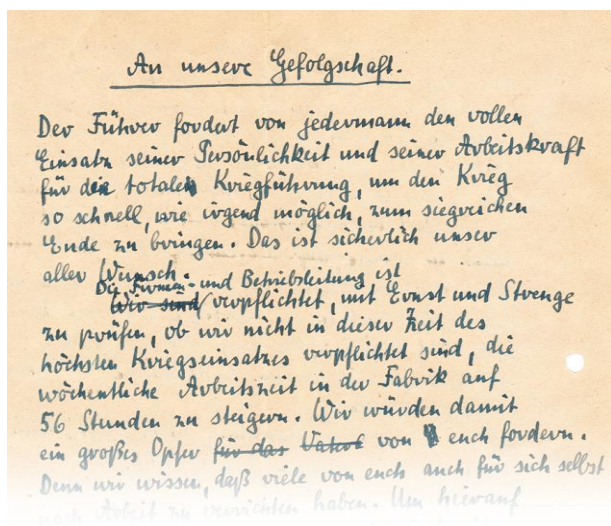 An unsere Gefolgschaft.
Der Führer fordert von jedermann den vollen
Einsatz seiner Persönlichkeit und seiner Arbeitskraft
für die totale Kriegführung, um den Krieg
so schnell, wie irgend möglich, zum siegreichen
Ende zu bringen. Das ist sicherlich unser
aller Wunsch.
Die Firmen- und Betriebsleitung ist
Wir sind verpflichtet, mit Ernst und Strenge
zu prüfen, ob wir nicht in dieser Zeit des
höchsten Kriegseinsatzes verpflichtet sind, die
wöchentliche Arbeitszeit in der Fabrik auf
56 Stunden zu steigern. Wir würden damit
ein großes Opfer für das von euch fordern.
Denn wir wissen, daß viele von euch auch für sich selbst
noch Arbeit zu verrichten haben. Um hierauf